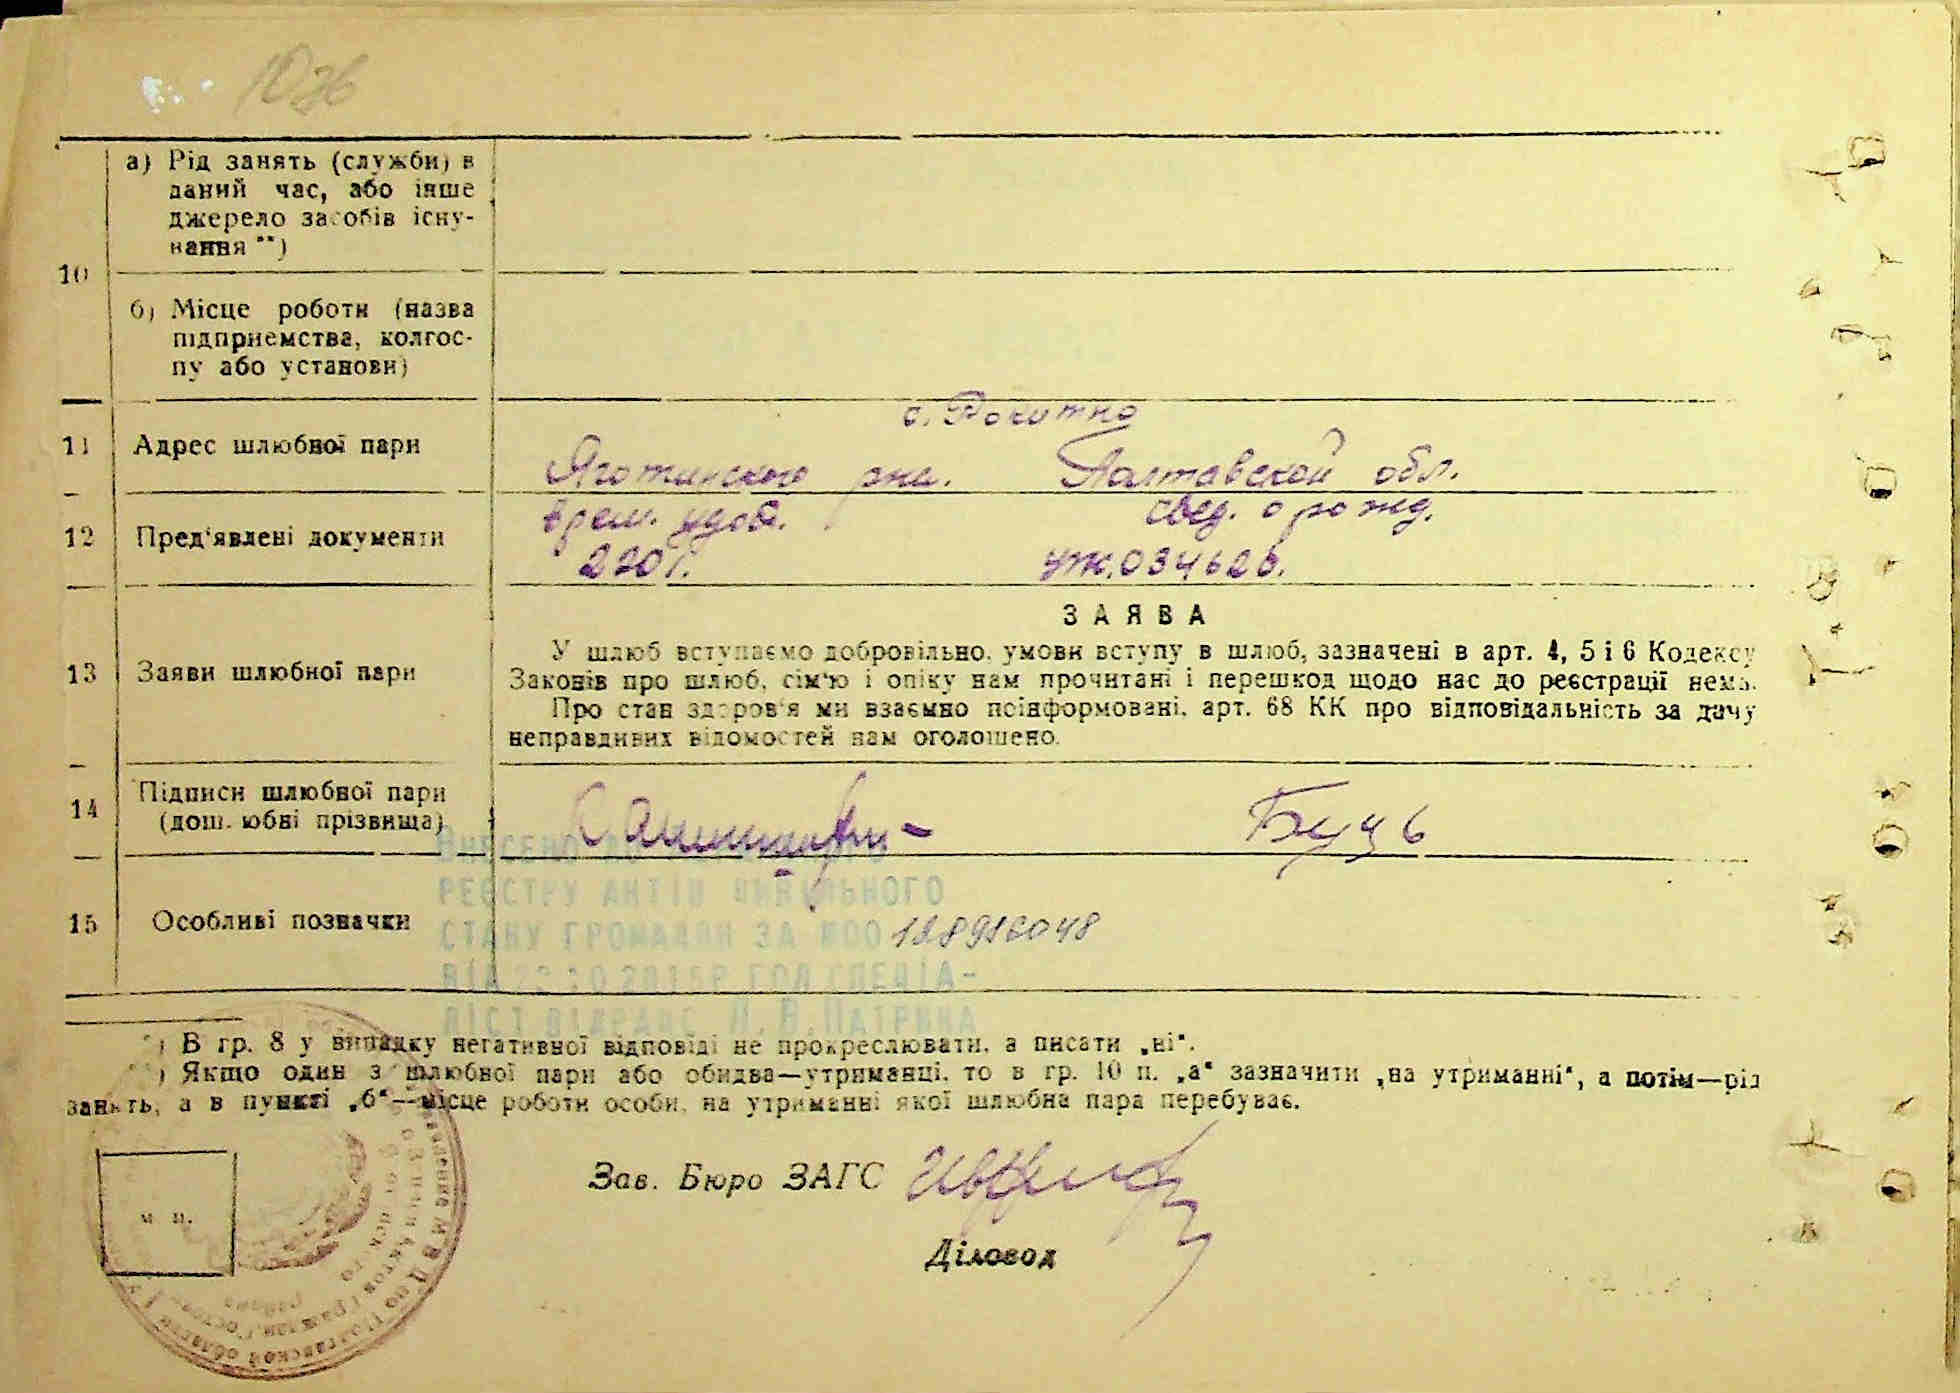 10
а) Рід занять (служби) в
даний час, або інше
джерело засобів існу-
вання **)
б) Місце роботи (назва
підприємства, колгос-
пу або установи)
с. Рокитно
11 Адрес шлюбної пари
Яготинского рна. Полтавской обл.
врем. удов. свед. о рожд.
12 Пред'явлені документи
ЗАЯВА
У шлюб вступаємо добровільно, умови вступу в шлюб, зазначені в арт. 4, 5 і 6 Кодексу
13 Заяви шлюбної пари
Законів про шлюб, сім'ю і опіку нам прочитані і перешкод щодо нас до реєстрації нема.
Про стан здоров'я ми взаємно поінформовані, арт. 68 КК про відповідальність за дачу
неправдивих відомостей нам оголошено.
14 Підписи шлюбної пари
(дошлюбні прізвища)
Буць
ВНЕСЕНО ДО
РЕЄСТРУ АКТІВ ЦИВІЛЬНОГО
15 Особливі позначки
СТАНУ ГРОМАДЯН ЗА №00
ВІД ГОЛ.СПЕЦІА-
ЛІСТ ВІДРАЦС Н.В.ПАТРИНА
*) В гр. 8 у випадку негативної відповіді не прокреслювати, а писати „ні“.
**) Якщо один з шлюбної пари або обидва—утриманці, то в гр. 10 п. „а“ зазначити „на утриманні“, а потім—рід
занять, а в пункті „б“—місце роботи особи, на утриманні якої шлюбна пара перебуває.
Зав. Бюро ЗАГС
м п.
Діловод